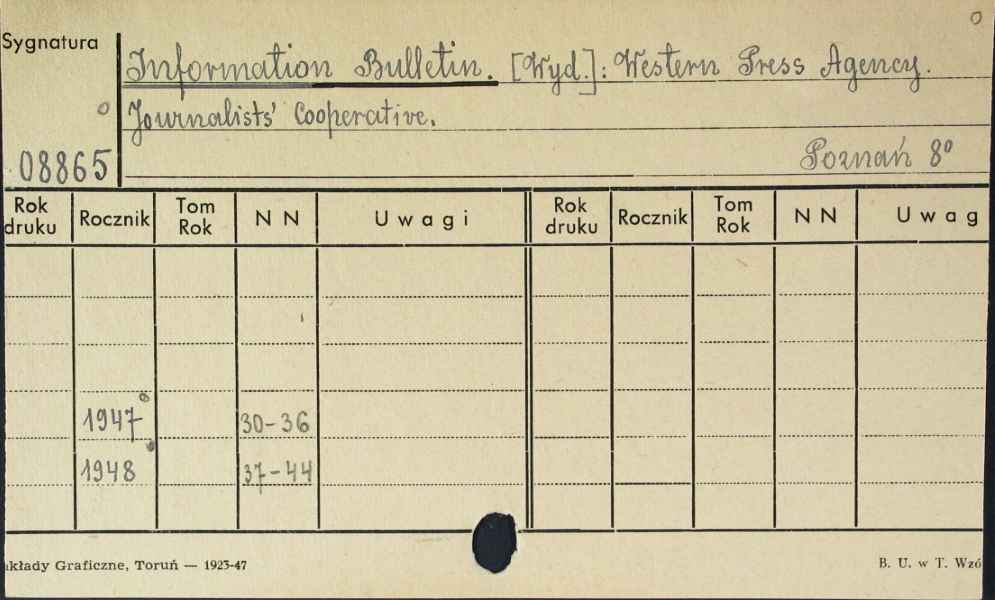 Sygnatura
Information Bulletin. [Wyd.]: Western Press Agency.
Journalists' Cooperative.
08865
Poznań 8°
Rok druku Rocznik Tom Rok N N Uwagi Rok druku Rocznik Tom Rok N N Uwag
1947 30-36
1948 37-44
akłady Graficzne, Toruń — 1925-47 B. U. w T. Wzó